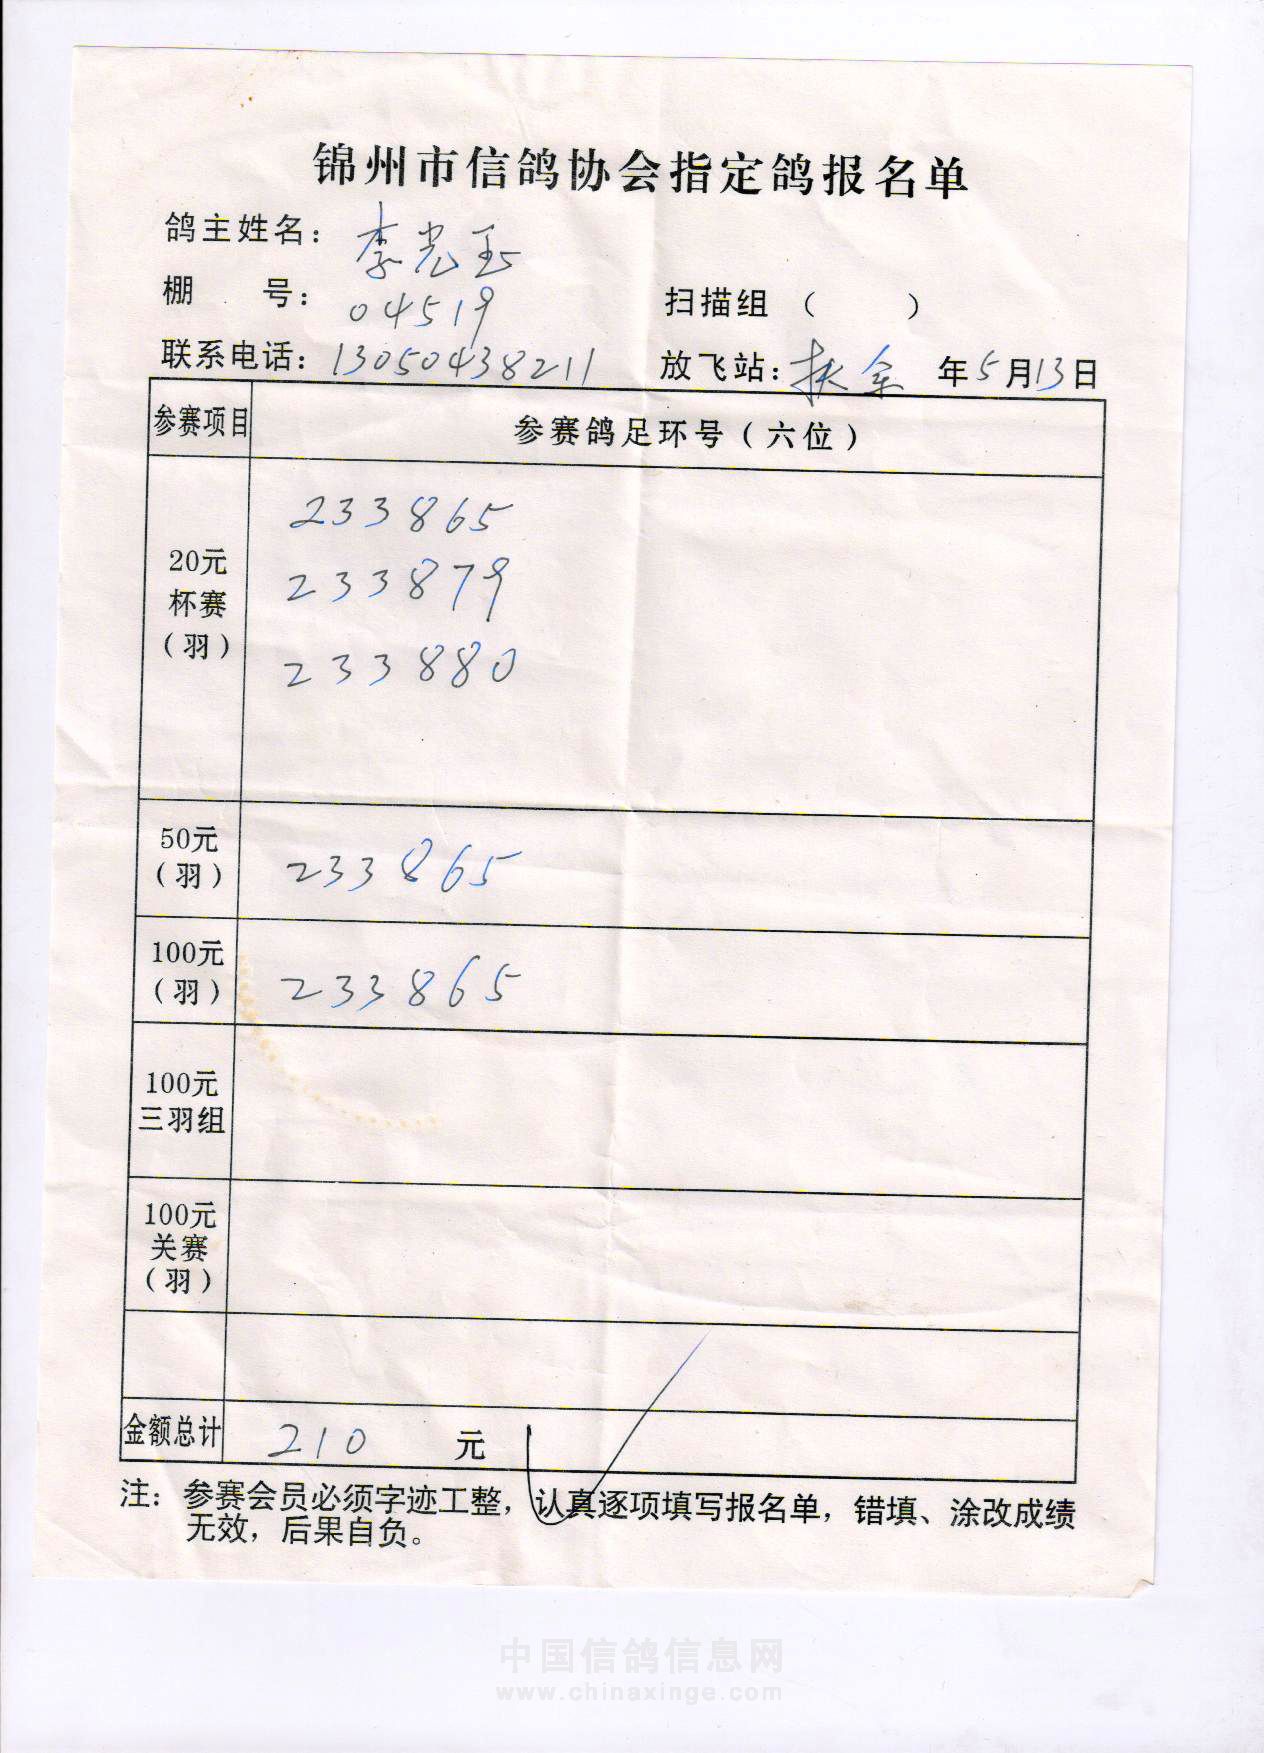 锦州市信鸽协会指定鸽报名单
鸽主姓名：李光玉
棚 号：04519 扫描组（ ）
联系电话：13050438211 放飞站：扶余 年5月13日
参赛项目 参赛鸽足环号（六位）
20元
杯赛
（羽）
233865
233879
233880
50元
（羽）
233865
100元
（羽）
233865
100元
三羽组
100元
关赛
（羽）
金额总计 210 元
注：参赛会员必须字迹工整，认真逐项填写报名单，错填、涂改成绩
无效，后果自负。
中国信鸽信息网
www.chinaxinge.com